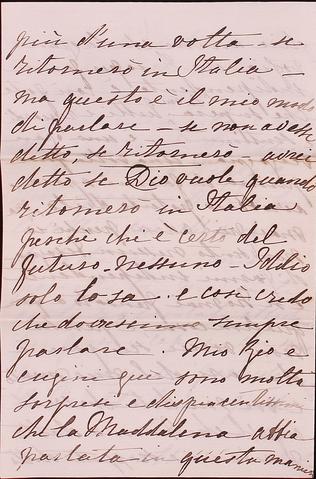 più d'una volta - se
ritornerò in Italia -
ma questo è il mio modo
di parlare - se non avessi
detto, se ritornerò avrei
detto se Dio vuole quando
ritornerò in Italia
perchè chi è certo del
futuro - nessuno - Iddio
solo lo sa. e così credo
che dovessimo sempre
parlare. Mio Zio e
cugini qui sono molto
sorprese e dispiacentissimi
che la Maddalena abbia
parlata in questa manier